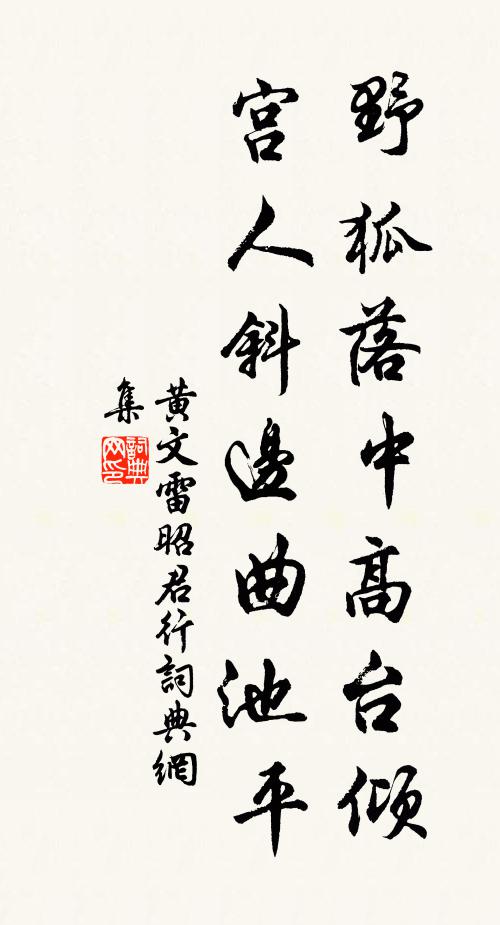 野狐落中高台倾
宫人斜邊曲池平
黄文雷昭君行詞典網
集
詞典
网印